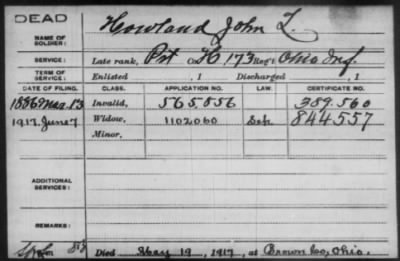 DEAD
NAME OF SOLDIER: Howland John L.
SERVICE: Late rank, Pvt Co. H, 173 Reg't Ohio Inf.
TERM OF SERVICE: Enlisted , 1 Discharged , 1
DATE OF FILING. CLASS. APPLICATION NO. LAW. CERTIFICATE NO.
1886 Mar. 13 Invalid, 565,856 389.560
1917, June 7 Widow, 1102060 844557
Minor,
ADDITIONAL SERVICES:
REMARKS:
Died May 19, 1917, at Brown Co, Ohio.